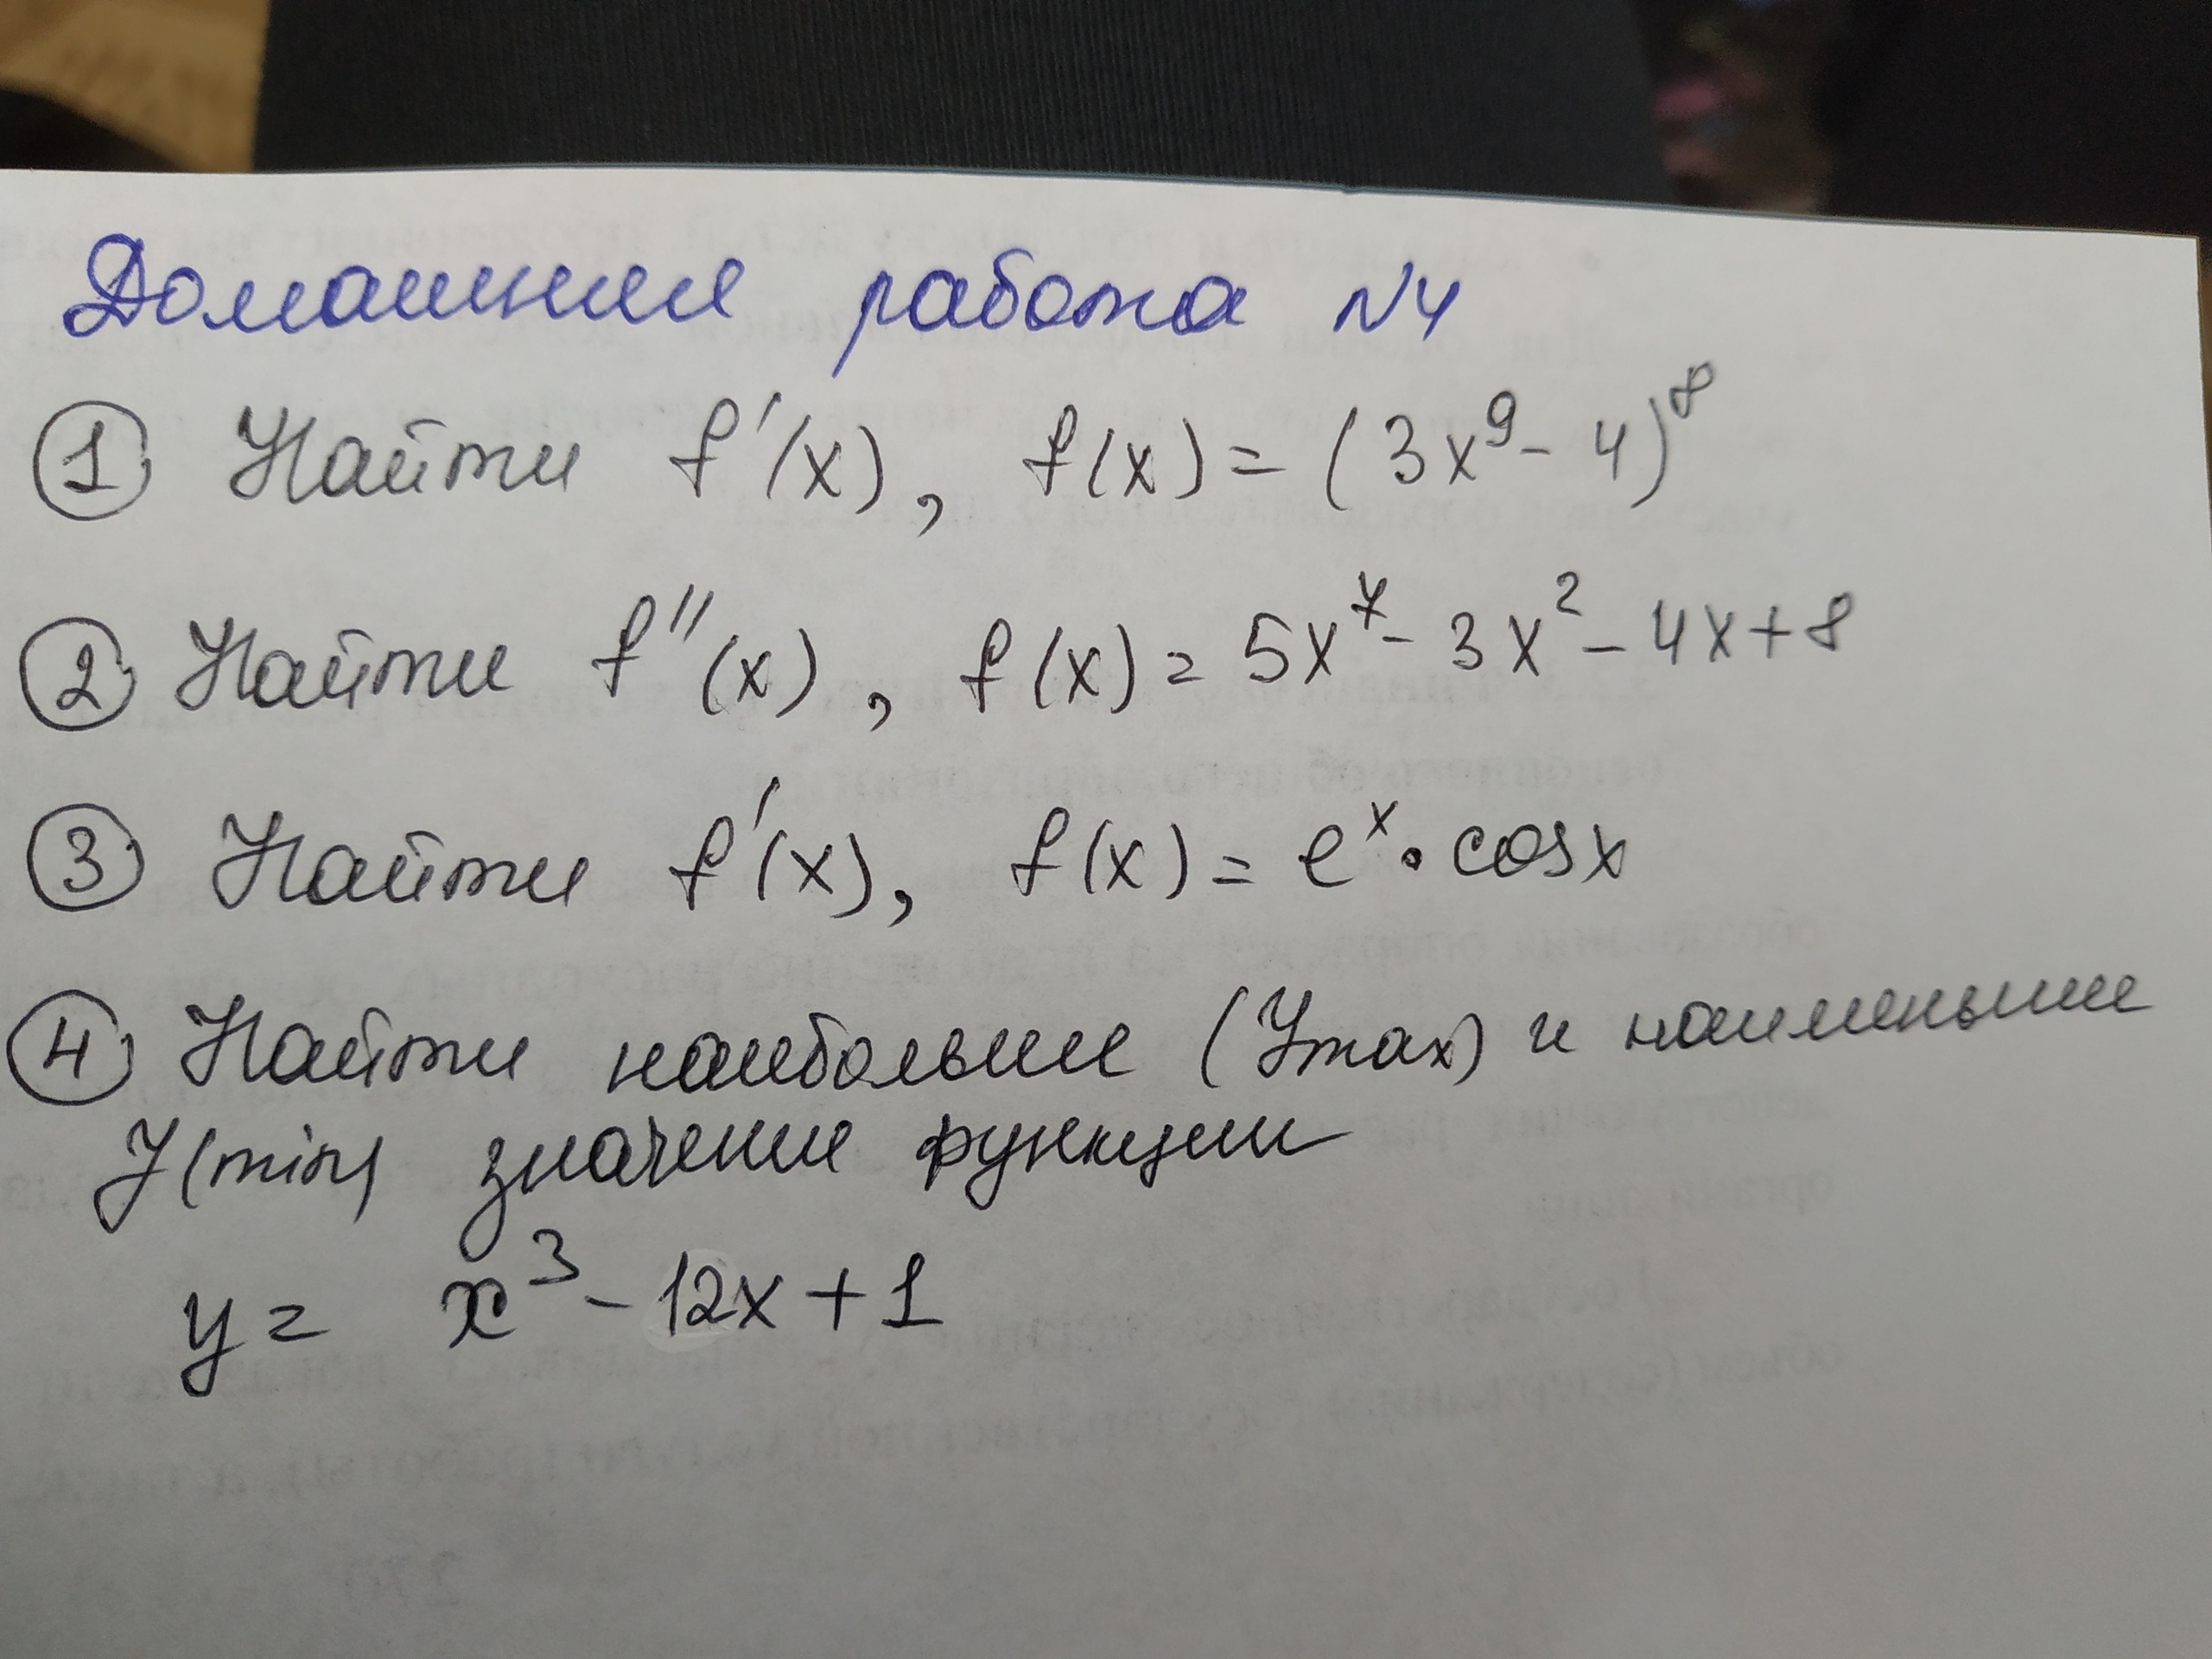 Домашнее работа №4
① Найти f'(x), f(x) = (3x⁹ - 4)⁸
② Найти f''(x), f(x) = 5x⁷ - 3x² - 4x + 8
③ Найти f'(x), f(x) = eˣ · cosx
④ Найти наибольшее (Ymax) и наименьшее
Y(min) значение функции
y = x³ - 12x + 1